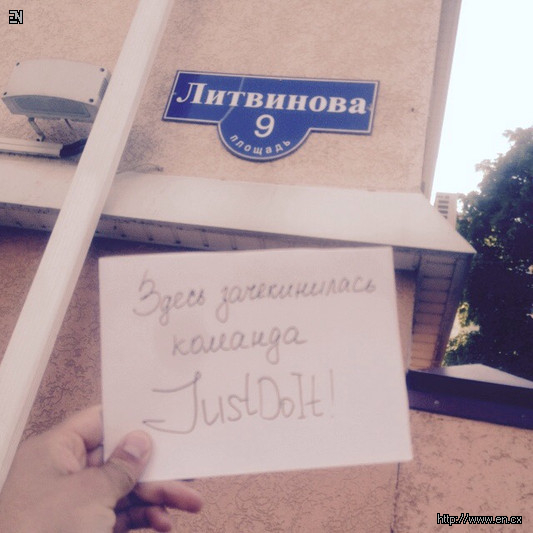 EN
Литвинова
9
площадь
Здесь зачекинилась
команда
JustDoIt!
http://www.en.cx